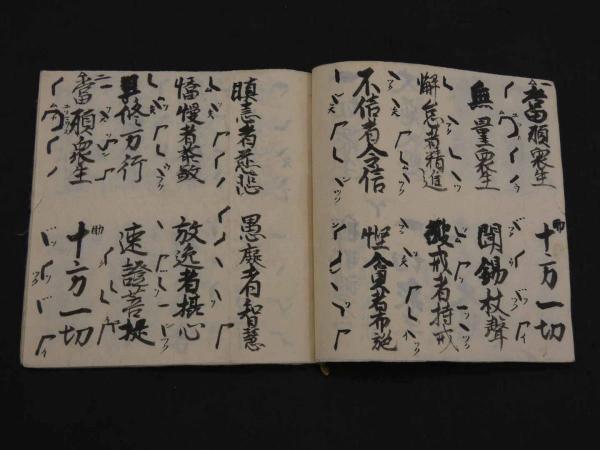 當願衆生 十方一切
無量衆生 聞錫杖聲
懈怠者精進 破戒者持戒
不信者令信 慳貪者布施
瞋恚者慈悲 愚癡者智慧
憍慢者恭敬 放逸者摂心
具修万行 速證菩提
當願衆生 十方一切